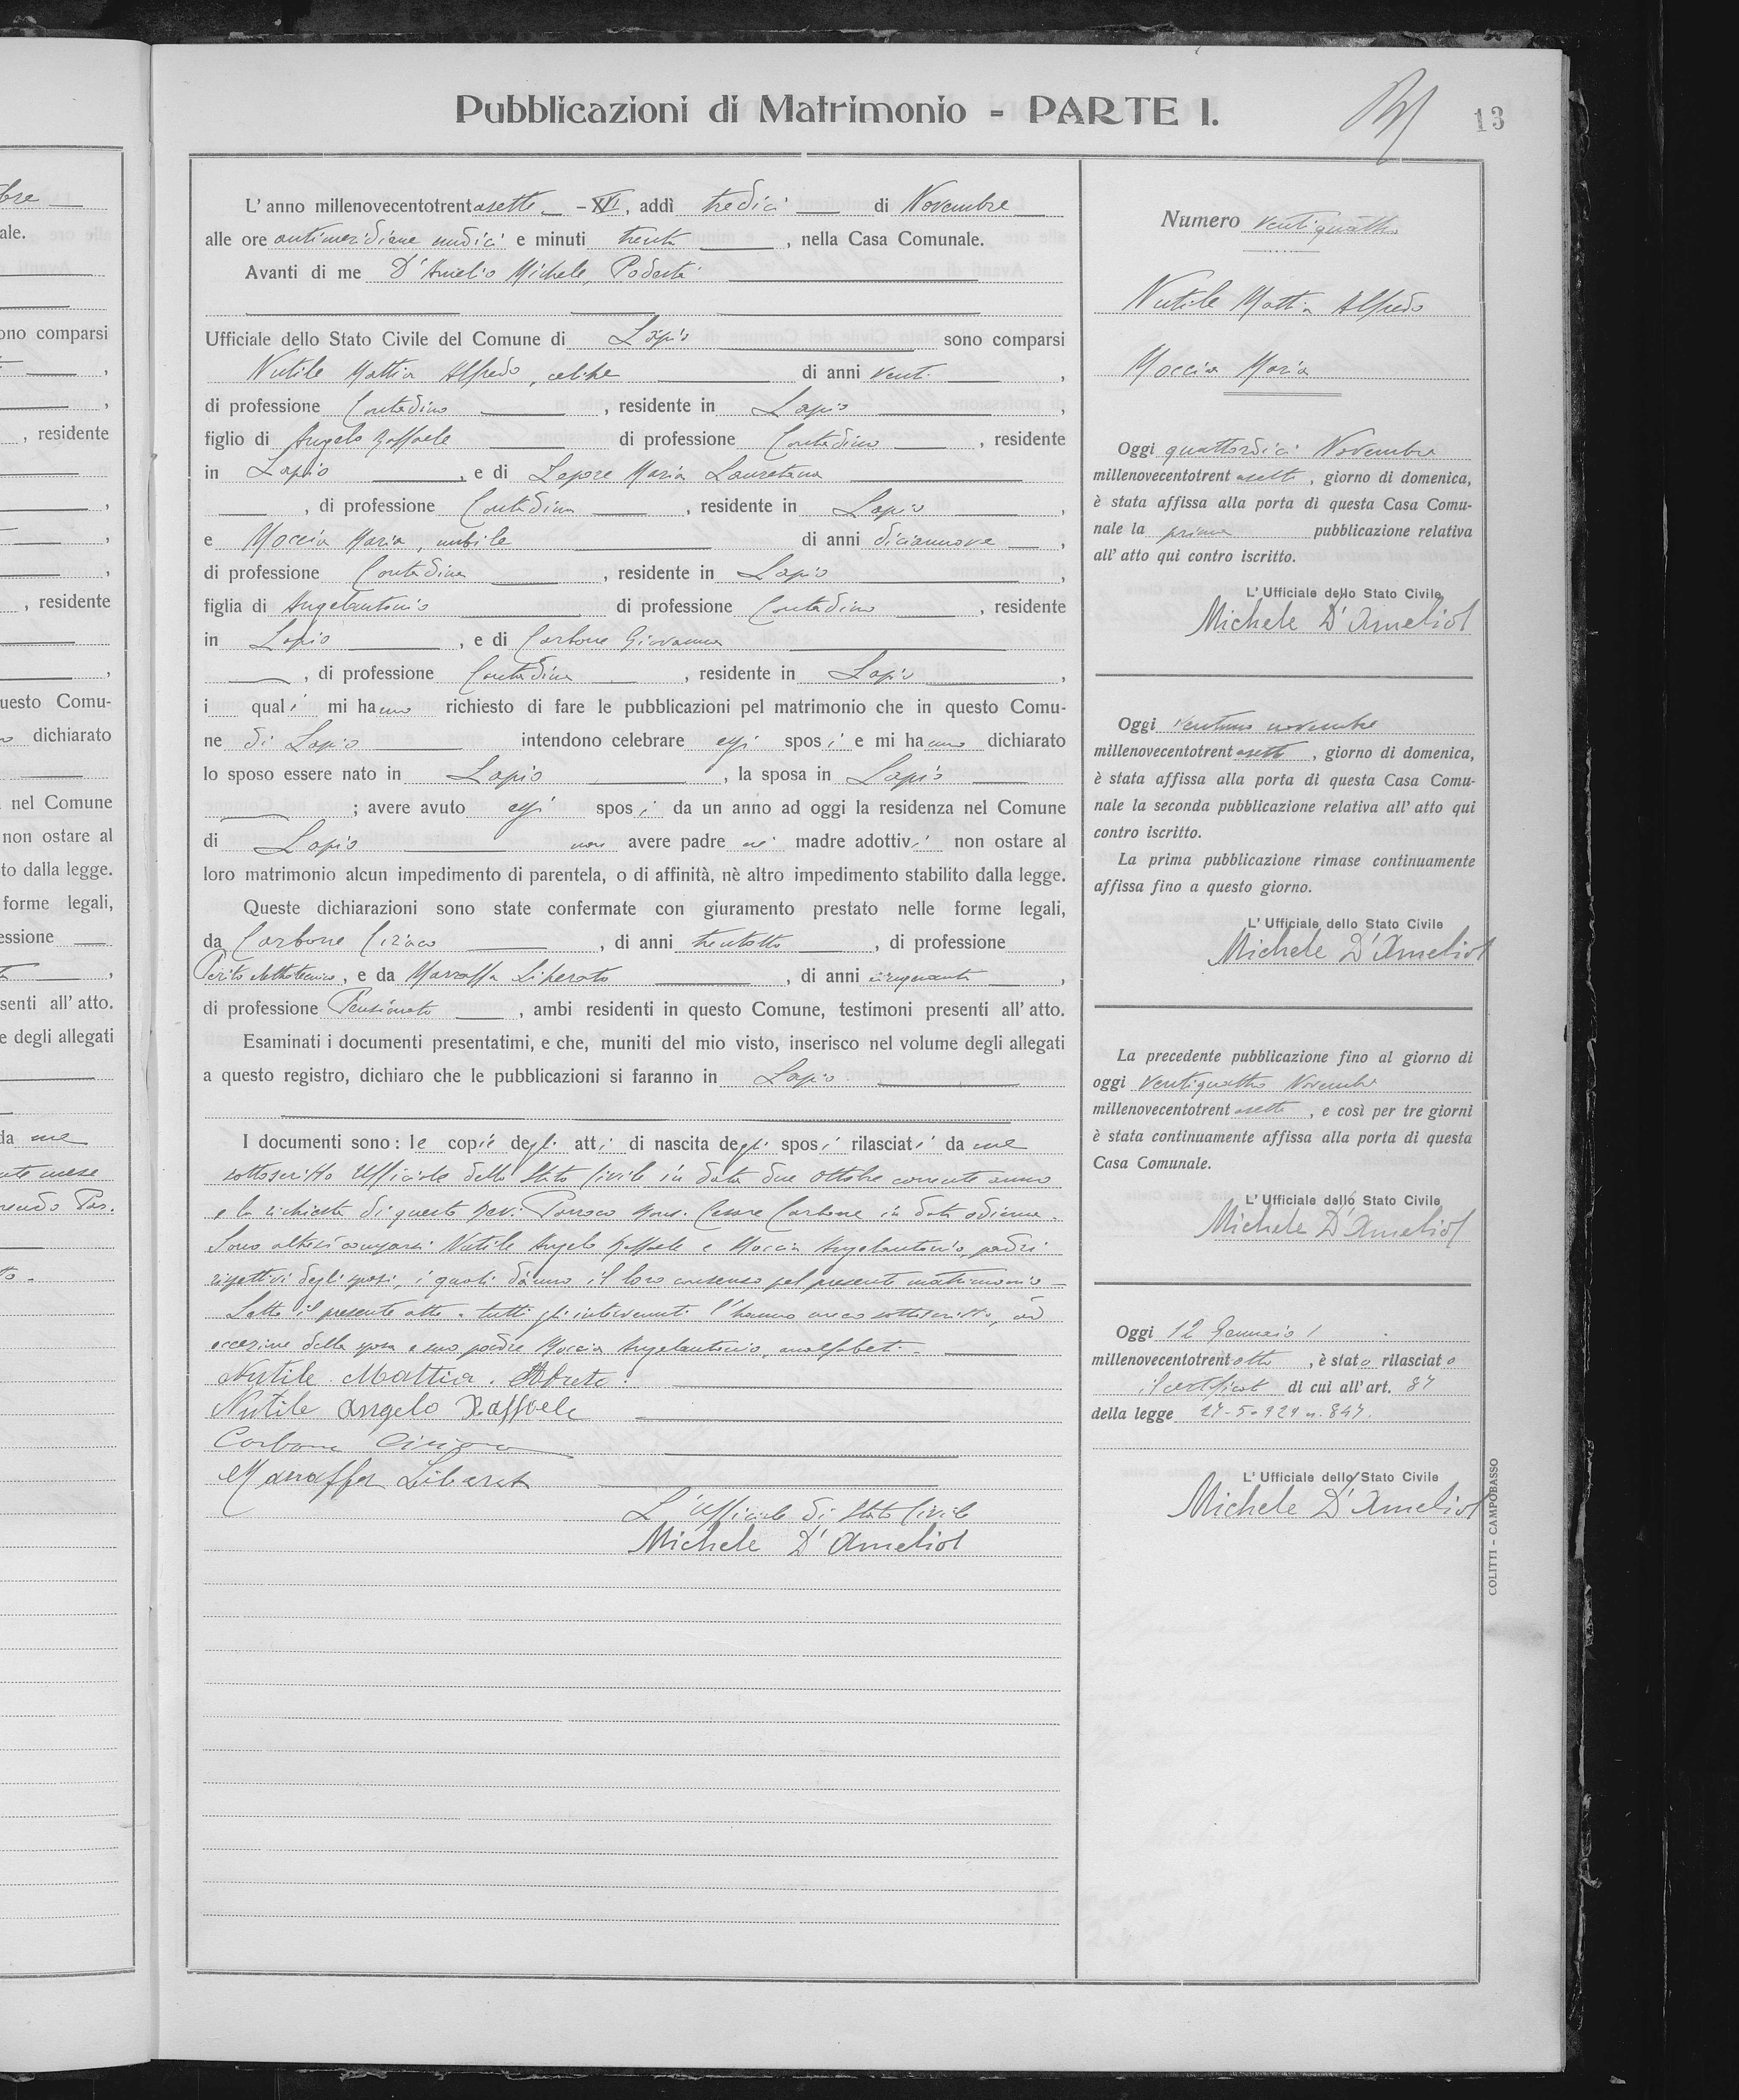 Pubblicazioni di Matrimonio - PARTE I.
13
L' anno millenovecentotrentasette - XVI, addì tredici di Novembre
alle ore antimeridiane undici e minuti trenta, nella Casa Comunale.
Avanti di me D'Amelio Michele, Podestà
Ufficiale dello Stato Civile del Comune di Lapio sono comparsi
Nutile Mattia Alfredo, celibe di anni venti,
di professione Contadino, residente in Lapio,
figlio di Angelo Raffaele di professione Contadino, residente
in Lapio, e di Lepore Maria Lauretana
, di professione Contadina, residente in Lapio,
e Moccia Maria, nubile di anni diciannove,
di professione Contadina, residente in Lapio,
figlia di Angelantonio di professione Contadino, residente
in Lapio, e di Carbone Giovanna
, di professione Contadina, residente in Lapio,
i quali mi hanno richiesto di fare le pubblicazioni pel matrimonio che in questo Comu-
ne di Lapio intendono celebrare essi sposi e mi hanno dichiarato
lo sposo essere nato in Lapio, la sposa in Lapio
; avere avuto essi sposi da un anno ad oggi la residenza nel Comune
di Lapio non avere padre nè madre adottivi non ostare al
loro matrimonio alcun impedimento di parentela, o di affinità, nè altro impedimento stabilito dalla legge.
Queste dichiarazioni sono state confermate con giuramento prestato nelle forme legali,
da Carbone Ciriaco, di anni trentotto, di professione
Perito elettrotecnico, e da Manaffa Liberato, di anni cinquanta,
di professione Pensionato, ambi residenti in questo Comune, testimoni presenti all' atto.
Esaminati i documenti presentatimi, e che, muniti del mio visto, inserisco nel volume degli allegati
a questo registro, dichiaro che le pubblicazioni si faranno in Lapio
I documenti sono: le copie degli atti di nascita degli sposi rilasciati da me
sottoscritto Ufficiale dello Stato Civile in data due ottobre corrente anno
e la richiesta di questo Rev. Parroco Mons. Cesare Carbone in data odierna.
Sono altresì comparsi Nutile Angelo Raffaele e Moccia Angelantonio, padri
rispettivi degli sposi, i quali dànno il loro consenso pel presente matrimonio
Letto il presente atto a tutti gli intervenuti l'hanno meco sottoscritto, ad
eccezione della sposa e suo padre Moccia Angelantonio, analfabeti.
Nutile Mattia Alfreto
Nutile Angelo Raffaele
Carbone Ciriaco
Manaffa Liberato
L'Ufficiale di Stato Civile
Michele D'Amelio
Numero ventiquattro
Nutile Mattia Alfredo
Moccia Maria
Oggi quattordici Novembre
millenovecentotrentasette, giorno di domenica,
è stata affissa alla porta di questa Casa Comu-
nale la prima pubblicazione relativa
all' atto qui contro iscritto.
L' Ufficiale dello Stato Civile
Michele D'Amelio
Oggi ventuno novembre
millenovecentotrentasette, giorno di domenica,
è stata affissa alla porta di questa Casa Comu-
nale la seconda pubblicazione relativa all' atto qui
contro iscritto.
La prima pubblicazione rimase continuamente
affissa fino a questo giorno.
L' Ufficiale dello Stato Civile
Michele D'Amelio
La precedente pubblicazione fino al giorno di
oggi ventiquattro Novembre
millenovecentotrentasette, e così per tre giorni
è stata continuamente affissa alla porta di questa
Casa Comunale.
L' Ufficiale dello Stato Civile
Michele D'Amelio
Oggi 12 Gennaio
millenovecentotrentotto, è stato rilasciato
il certificato di cui all' art. 87
della legge 27-5-929 n. 847.
L' Ufficiale dello Stato Civile
Michele D'Amelio
COLITTI - CAMPOBASSO
bre
ale.
ono comparsi
, residente
, residente
uesto Comu-
dichiarato
nel Comune
non ostare al
to dalla legge.
forme legali,
essione
senti all' atto.
e degli allegati
da me
nte mese